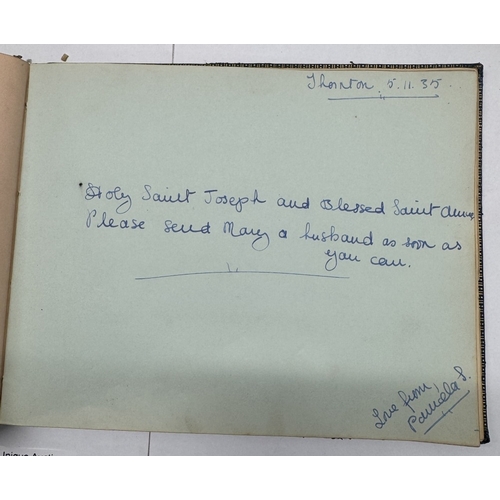 Thornton 5.11.35
Holy Saint Joseph and Blessed Saint Anne
Please send Mary a husband as soon as
you can.
Love from
Pamela S.